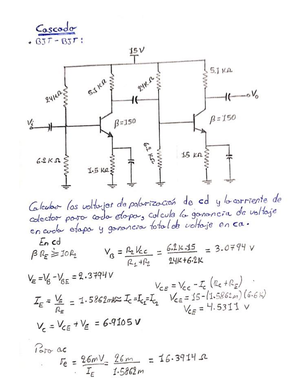 Cascada
• BJT-BJT:
15V
24KΩ
5.1KΩ
24KΩ
5.1KΩ
Vo
β=150
β=150
Vi
6.2KΩ
1.5KΩ
6.2KΩ
1.5KΩ
Calcular los voltajes de polarización de cd y la corriente de
colector para cada etapa, calcula la ganancia de voltaje
en cada etapa y ganancia total de voltaje en ca.
En cd
βRE ≥ 10R2
VB = R2Vcc / R1+R2 = 6.2K·15 / 24K+6.2K = 3.0794 V
VE = VB - VBE = 2.3794V
IE = VE / RE = 1.5862mA≈IC=IC1=IC2
VCE = Vcc - Ic (Rc+RE)
VCE = 15-(1.5862m)(6.6K)
VCE = 4.5311 V
Vc = VCE + VE = 6.9105V
Para ac
re = 26mV / IE = 26m / 1.5862m = 16.3914 Ω